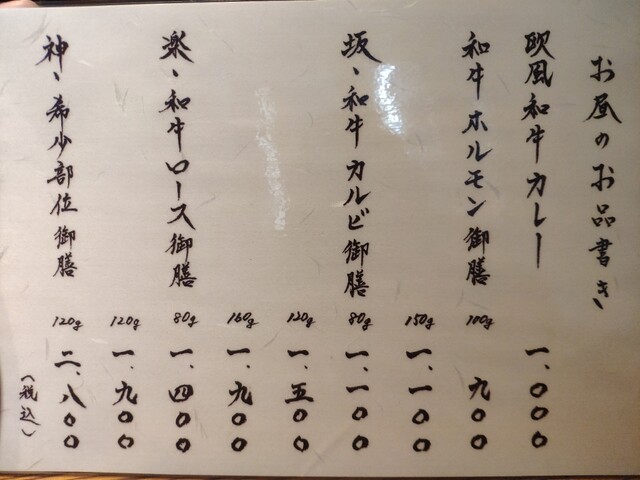 お昼のお品書き
欧風和牛カレー 一、〇〇〇
和牛ホルモン御膳 100g 九〇〇
150g 一、一〇〇
坂、和牛カルビ御膳 80g 一、一〇〇
120g 一、五〇〇
160g 一、九〇〇
楽、和牛ロース御膳 80g 一、四〇〇
120g 一、九〇〇
神、希少部位御膳 120g 二、八〇〇
（税込）